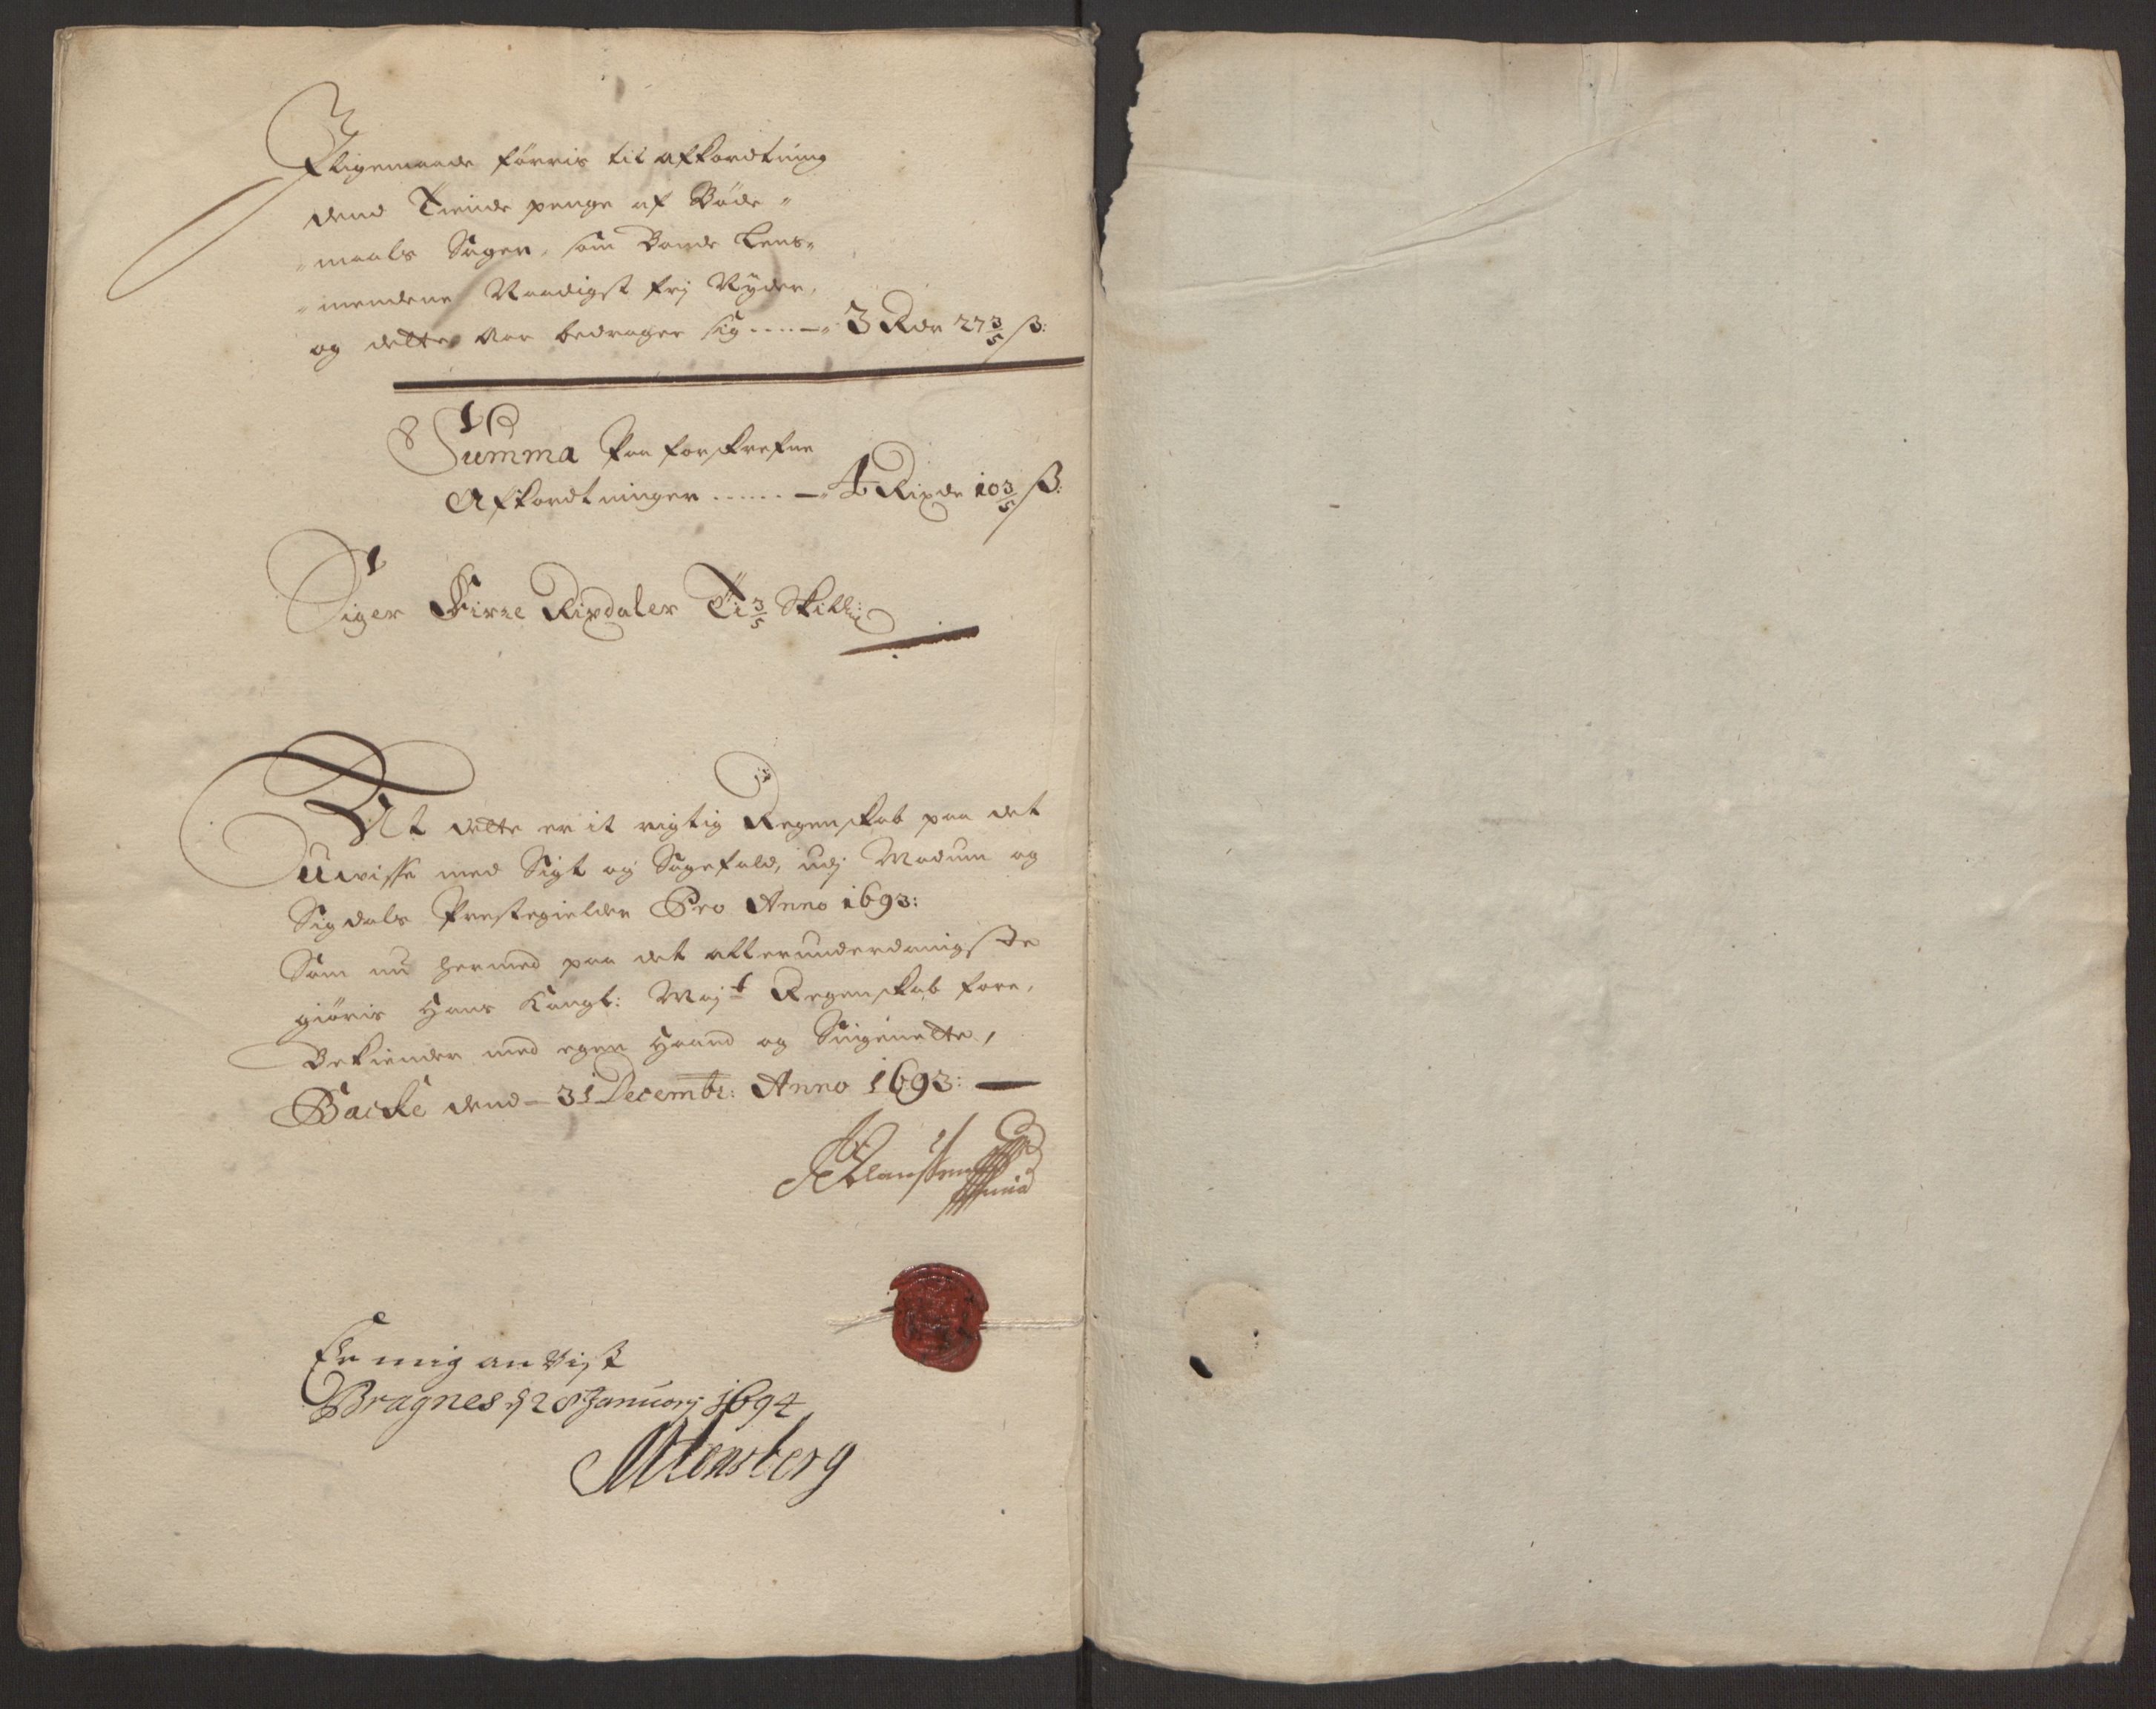 Iligemaade førris til afkordtning
dend Tiende penge af Böde-
maals Sager, som Bonde Lens-
mendene Naadigst frj Nyder,
og dette Aar bedrager sig ..... 3 Rdr 27 3/5 ß:
Summa Paa forskrefne
Afkordtninger ...... 4 Rixdr 10 3/5 ß:
Siger Firre Rixdaler Ti 3/5 Skilling
At dette er it rigtig Regenskab paa det
Uwisse med Sigt og Sagefald, udj Modum og
Sigdals Prestegielder Pro Anno 1693:
Som nu hermed paa det allerunderdanigste
giöris Hans Kongl: Mayt Regenskab fore,
Bekiender med egen Haand og Signette,
Backe dend 31 Decembr: Anno 1693:
Er mig an Vist
Bragnes d 28 Januarj 1694